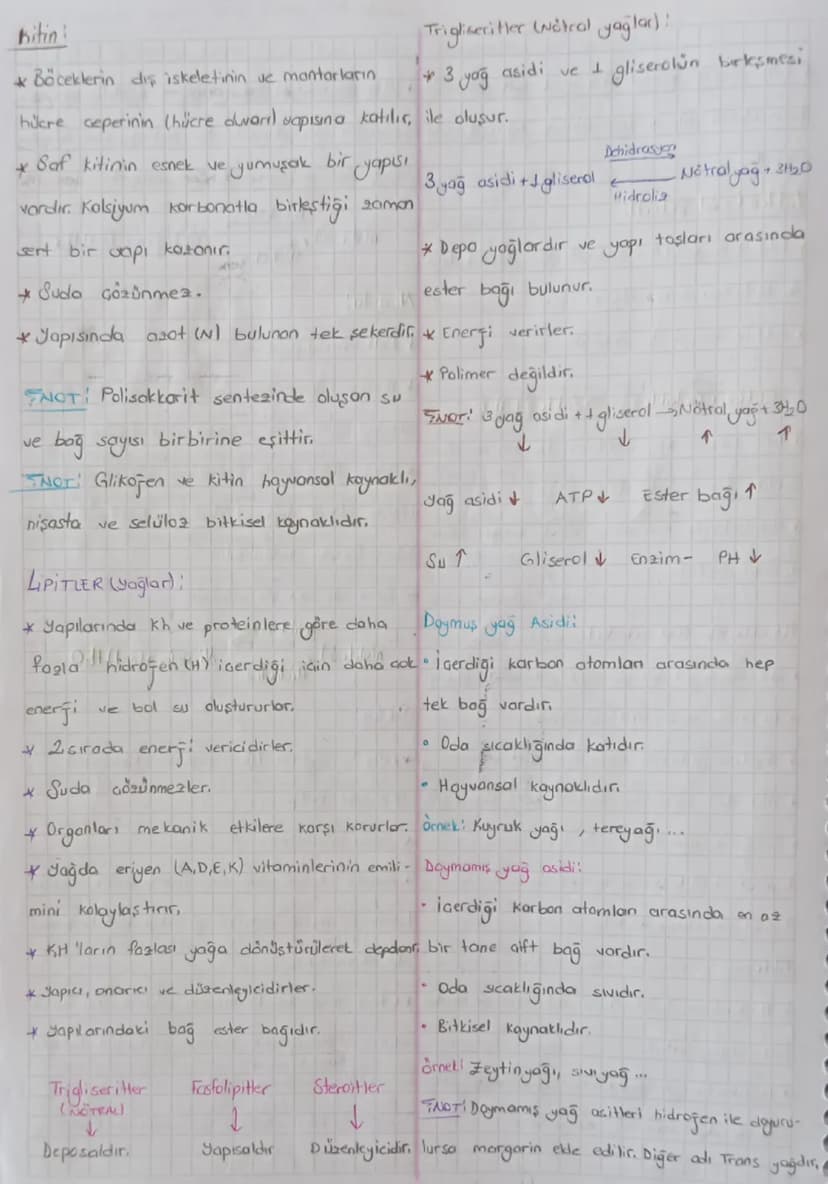 Kitin:
* Böceklerin dış iskeletinin ve mantarların
hücre çeperinin (hücre duvarı) yapısına katılır.
* Saf kitinin esnek ve yumuşak bir yapısı
vardır. Kalsiyum karbonatla birleştiği zaman
sert bir yapı kazanır.
* Suda çözünmez.
* Yapısında azot (N) bulunan tek şekerdir.
NOT: Polisakkarit sentezinde oluşan su
ve bağ sayısı birbirine eşittir.
NOT: Glikojen ve kitin hayvansal kaynaklı,
nişasta ve selüloz bitkisel kaynaklıdır.
LİPİTLER (yağlar):
* Yapılarında Kh ve proteinlere göre daha
fazla hidrojen (H) içerdiği için daha çok
enerji ve bol su oluştururlar.
* 2. sırada enerji vericidirler.
* Suda çözünmezler.
* Organları mekanik etkilere karşı korurlar.
* Yağda eriyen (A,D,E,K) vitaminlerinin emili-
mini kolaylaştırır.
* KH'ların fazlası yağa dönüştürülerek depolanır.
* Yapıcı, onarıcı ve düzenleyicidirler.
* Yapılarındaki bağ ester bağıdır.
Trigliseritler Fosfolipitler Steroitler
(NÖTRAL)
↓ ↓ ↓
Deposaldır. Yapısaldır Düzenleyicidir.
Trigliseritler (Nötral yağlar):
* 3 yağ asidi ve 1 gliserolün birleşmesi
ile oluşur.
Dehidrasyon
3 yağ asidi + 1 gliserol ← Nötral yağ + 3H2O
Hidroliz
* Depo yağlardır ve yapı taşları arasında
ester bağı bulunur.
* Enerji verirler.
* Polimer değildir.
NOT: 3 yağ asidi + 1 gliserol → Nötral yağ + 3H2O
↓ ↓ ↑ ↑
Yağ asidi ↓ ATP ↓ Ester bağı ↑
Su ↑ Gliserol ↓ Enzim - PH ↓
Doymuş yağ Asidi:
• İçerdiği karbon atomları arasında hep
tek bağ vardır.
• Oda sıcaklığında katıdır.
• Hayvansal kaynaklıdır.
Örnek: Kuyruk yağı, tereyağı ...
Doymamış yağ asidi:
• İçerdiği karbon atomları arasında en az
bir tane çift bağ vardır.
• Oda sıcaklığında sıvıdır.
• Bitkisel kaynaklıdır.
Örnek: Zeytinyağı, sıvıyağ...
NOT: Doymamış yağ asitleri hidrojen ile doyuru-
lursa margarin elde edilir. Diğer adı Trans yağdır.